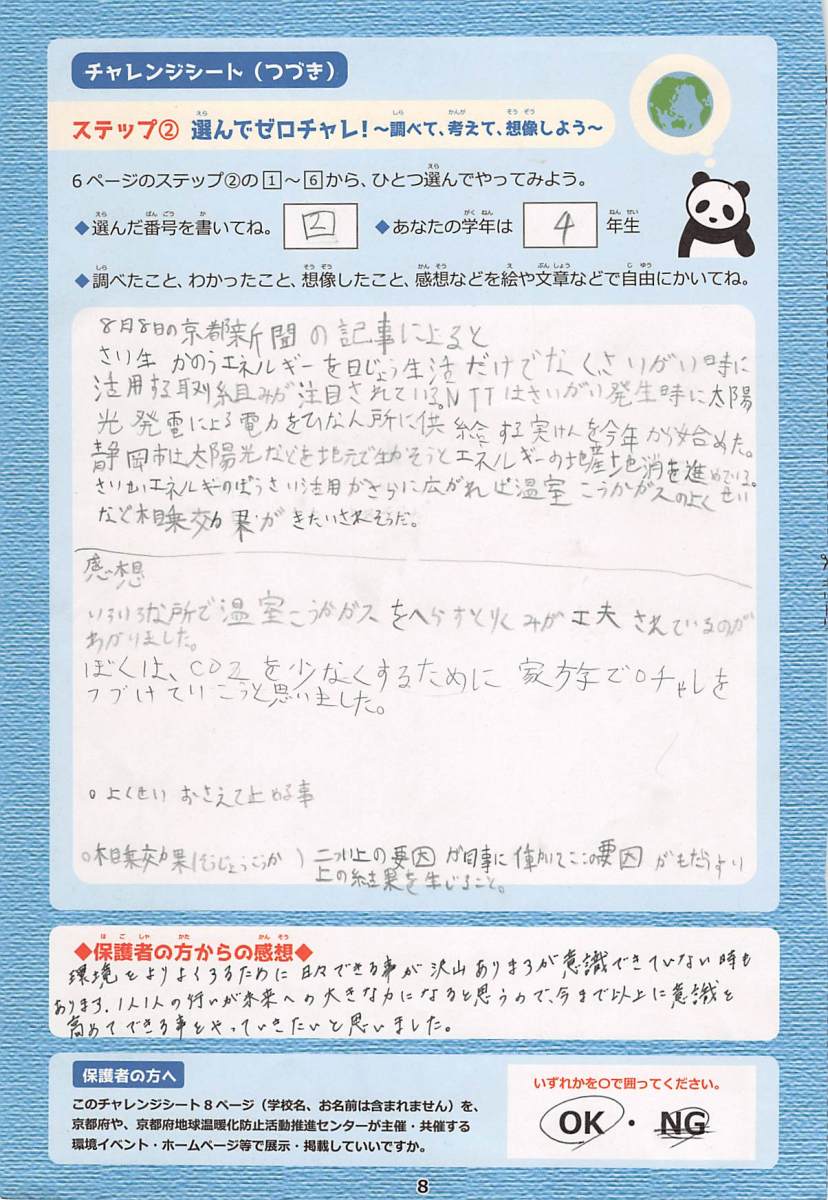 チャレンジシート（つづき）
ステップ② 選んでゼロチャレ！～調べて、考えて、想像しよう～
6ページのステップ②の1～6から、ひとつ選んでやってみよう。
◆選んだ番号を書いてね。 四 ◆あなたの学年は 4 年生
◆調べたこと、わかったこと、想像したこと、感想などを絵や文章などで自由にかいてね。
8月8日の京都新聞の記事によると
さい生かのうエネルギーを日じょう生活だけでなく、さいがい時に
活用する取り組みが注目されている。NTTはさいがい発生時に太陽
光発電による電力をひなん所に供給する実けんを今年から始めた。
静岡市は太陽光などを地元で生かそうとエネルギーの地産地消を進めている。
さいせいエネルギーのぼうさい活用がさらに広がれば温室こうかガスのよくせい
など相乗効果がきたいされそうだ。
感想
いろいろな所で温室こうかガスをへらすとりくみが工夫されているのが
わかりました。
ぼくは、CO2を少なくするために家族で0チャレを
つづけていこうと思いました。
○よくせい おさえて止める事
○相乗効果(そうじょうこうか) 二つ以上の要因が同時に働いてここの要因がもたらす以
上の結果を生じること。
◆保護者の方からの感想◆
環境をよりよくするために日々できる事が沢山ありますが意識できていない時も
あります。1人1人の行いが未来への大きな力になると思うので、今まで以上に意識を
高めてできる事をやっていきたいと思いました。
保護者の方へ
このチャレンジシート8ページ（学校名、お名前は含まれません）を、
京都府や、京都府地球温暖化防止活動推進センターが主催・共催する
環境イベント・ホームページ等で展示・掲載していいですか。
いずれかを○で囲ってください。
OK・NG
8